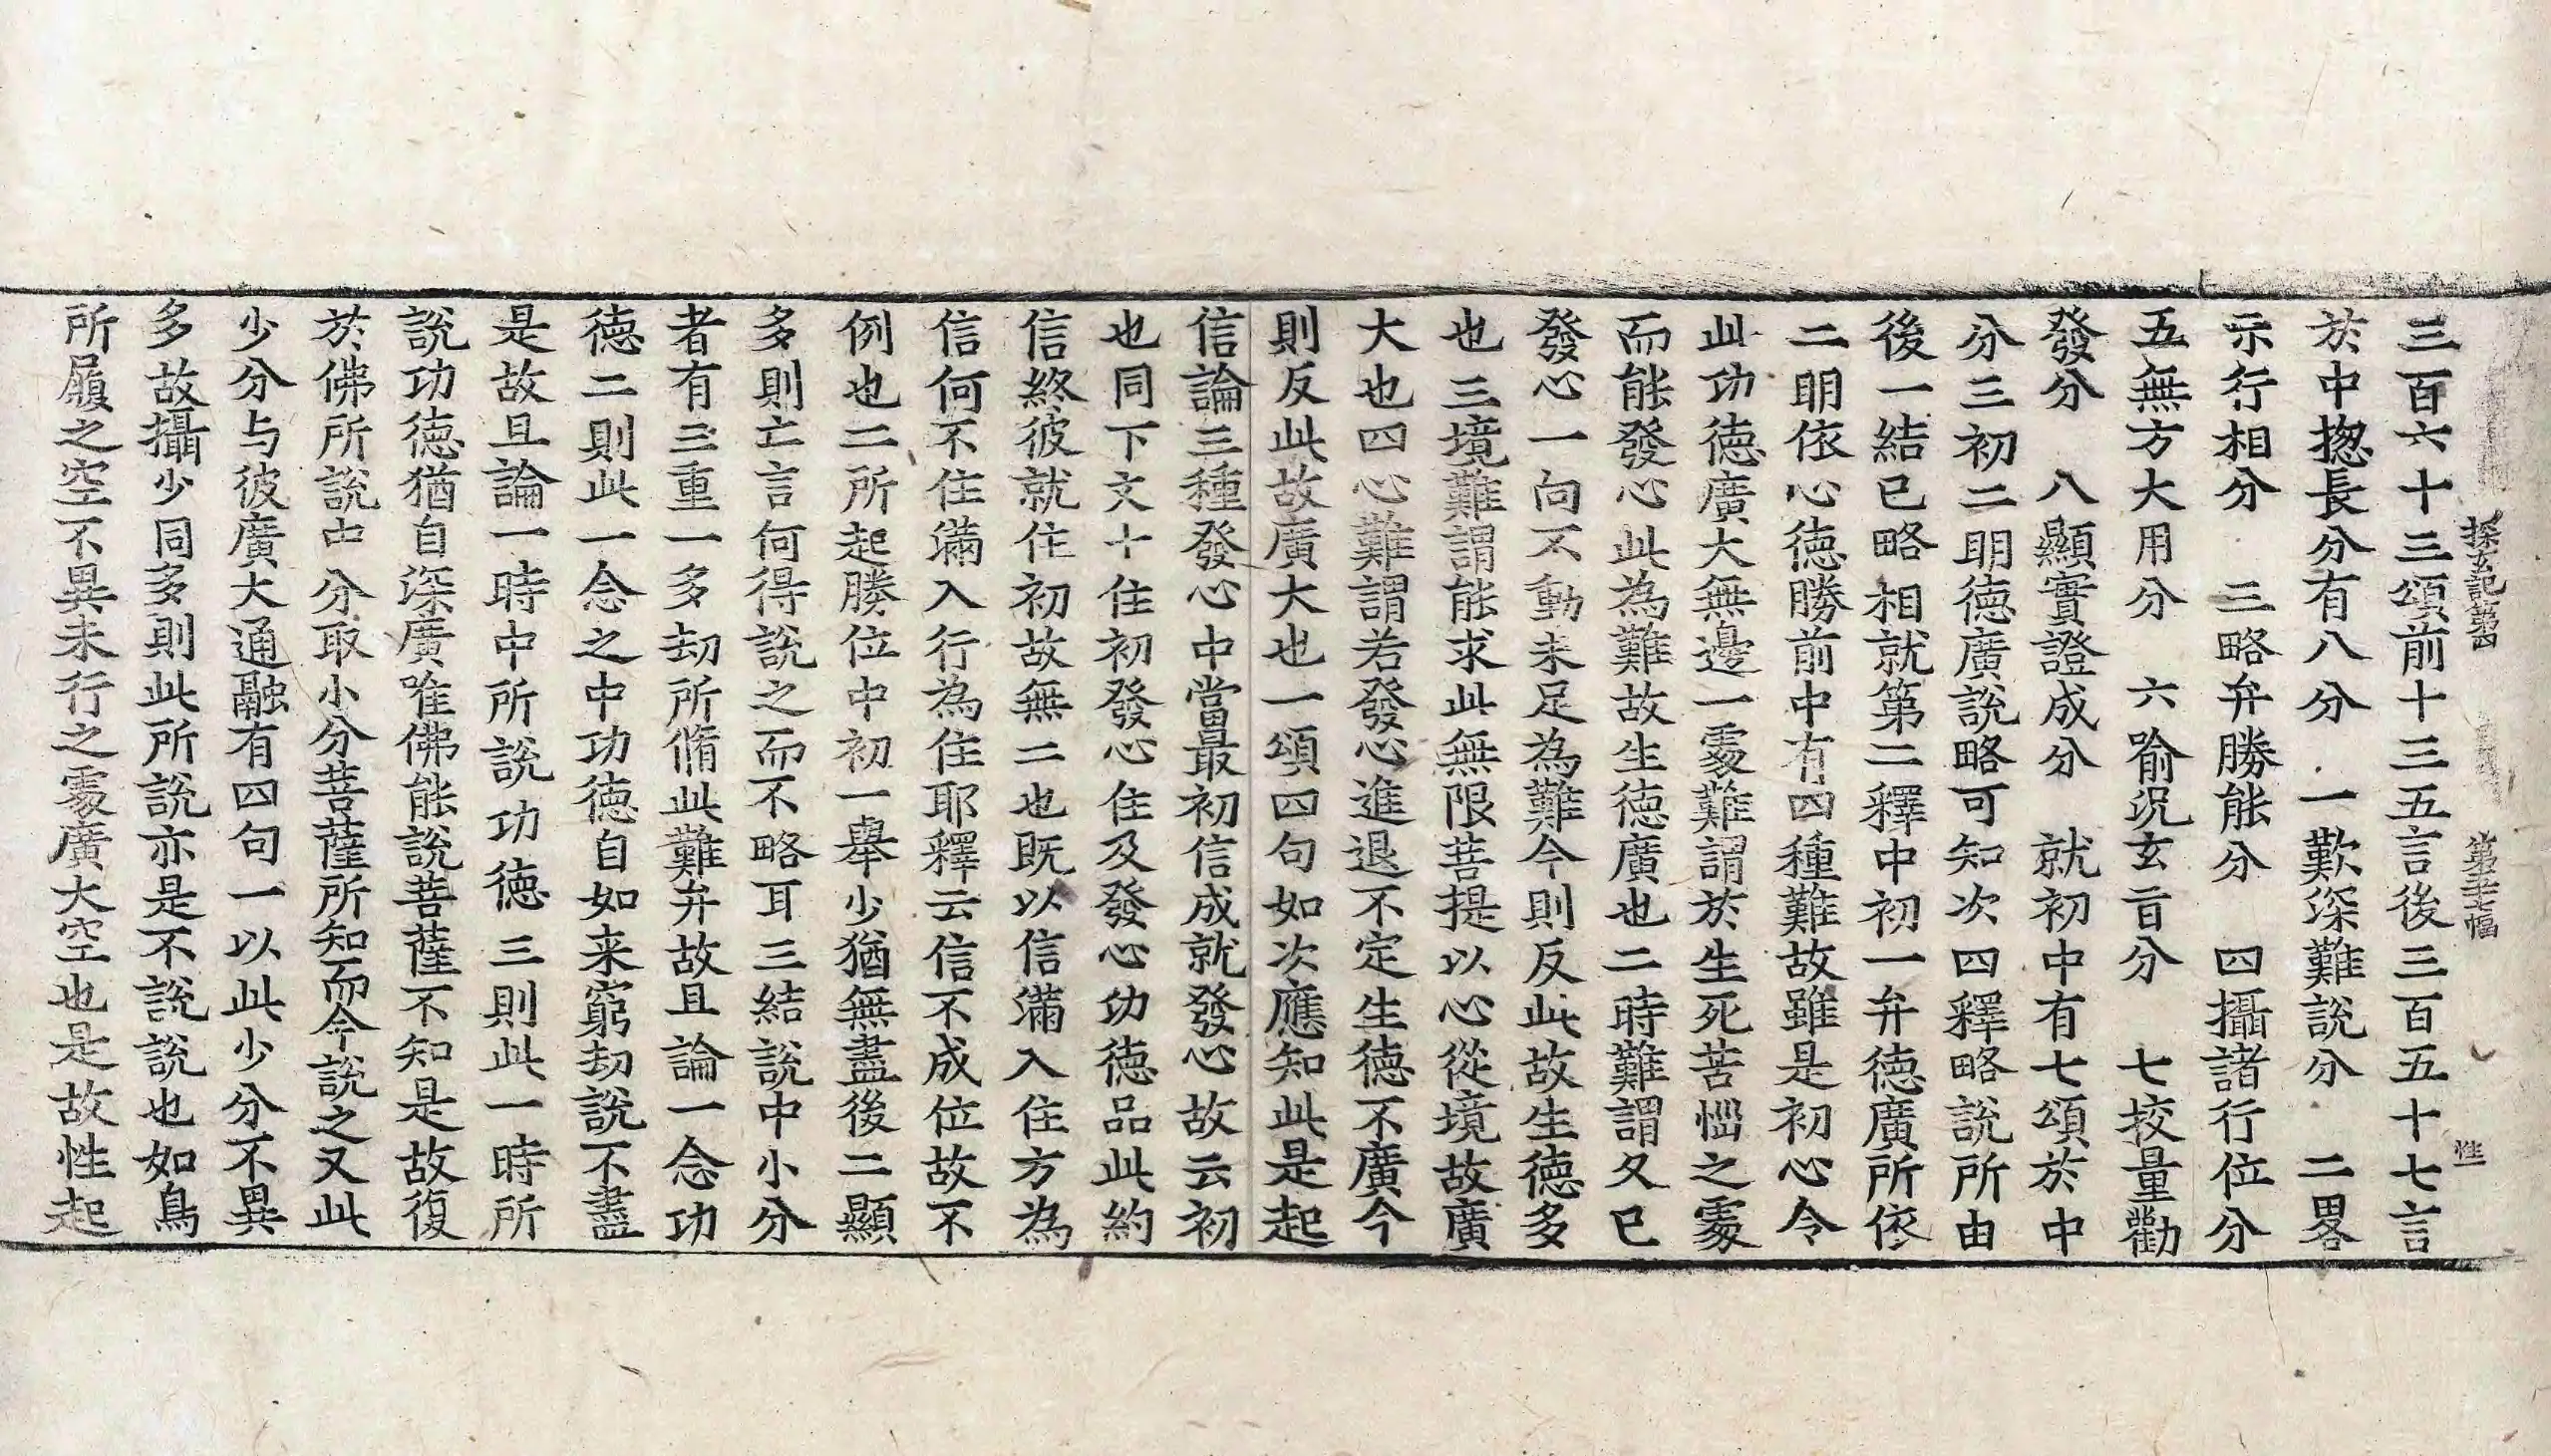 探玄記第四 第三十七幅 性一
三百六十三頌前十三五言後三百五十七言
於中揔長分有八分 一歎深難說分 二畧
示行相分 三略弁勝能分 四攝諸行位分
五無方大用分 六喻況玄旨分 七挍量勸
發分 八顯實證成分 就初中有七頌於中
分三初二明德廣說略可知次四釋略說所由
後一結已略相就第二釋中初一弁德廣所依
二明依心德勝前中有四種難故雖是初心令
此功德廣大無邊一處難謂於生死苦惱之處
而能發心此為難故生德廣也二時難謂久已
發心一向不動未足為難今則反此故生德多
也三境難謂能求此無限菩提以心從境故廣
大也四心難謂若發心進退不定生德不廣今
則反此故廣大也一頌四句如次應知此是起
信論三種發心中當最初信成就發心故云初
也同下文十住初發心住及發心功德品此約
信終彼就住初故無二也既以信滿入住方為
信何不住滿入行為住耶釋云信不成位故不
例也二所起勝位中初一舉少猶無盡後二顯
多則亡言何得說之而不略耳三結說中小分
者有三重一多劫所脩此難弁故且論一念功
德二則此一念之中功德自如来窮劫說不盡
是故且論一時中所說功德三則此一時所
說功德猶自深廣唯佛能說菩薩不知是故復
於佛所說中分取小分菩薩所知而今說之又此
少分与彼廣大通融有四句一以此少分不異
多故攝少同多則此所說亦是不說說也如鳥
所履之空不異未行之處廣大空也是故性起